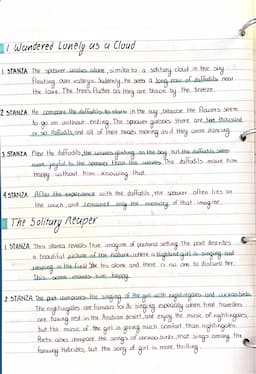 I Wandered Lonely as a Cloud
1 STANZA The speaker walks alone, similar to a solitary cloud in the sky
floating over valleys. Suddenly, he sees a long row of daffodils near
the lake. The trees flutter as they are blown by the breeze.
2 STANZA He compare the daffodils to stars in the sky because the flowers seem
to go on without ending. The speaker guesses there are ten thousand
or so daffodils, and all of their heads moving as if they were dancing.
3 STANZA Near the daffodils the waves glisting on the bay but the daffodils seem
more joyful to the speaker than the waves. The daffodils make him
happy without him knowing that.
4 STANZA After the experience with the daffodils, the speaker often lies in
the couch, and remember only the memory of that imagine.
The Solitary Reaper
1 STANZA This stanza reveals true imagine of pastoral setting. The poet describes
a beautiful picture of the nature, where a Highland girl is singing and
reaping in the field. She is alone and there is no one to disturb her.
This scene makes him happy.
2 STANZA The poet compares the singing of the girl with nightingales and cuckoo-birds.
The nightingales are famous for its singing especially when tired travellers
are taking rest in the Arabian desert, and enjoy the music of nightingales,
but the music of the girl is giving much comfort than nightingales.
Poets also compare the songs of cuckoo-birds, that sings among the
faraway Hebrides, but the song of girl is more thrilling.